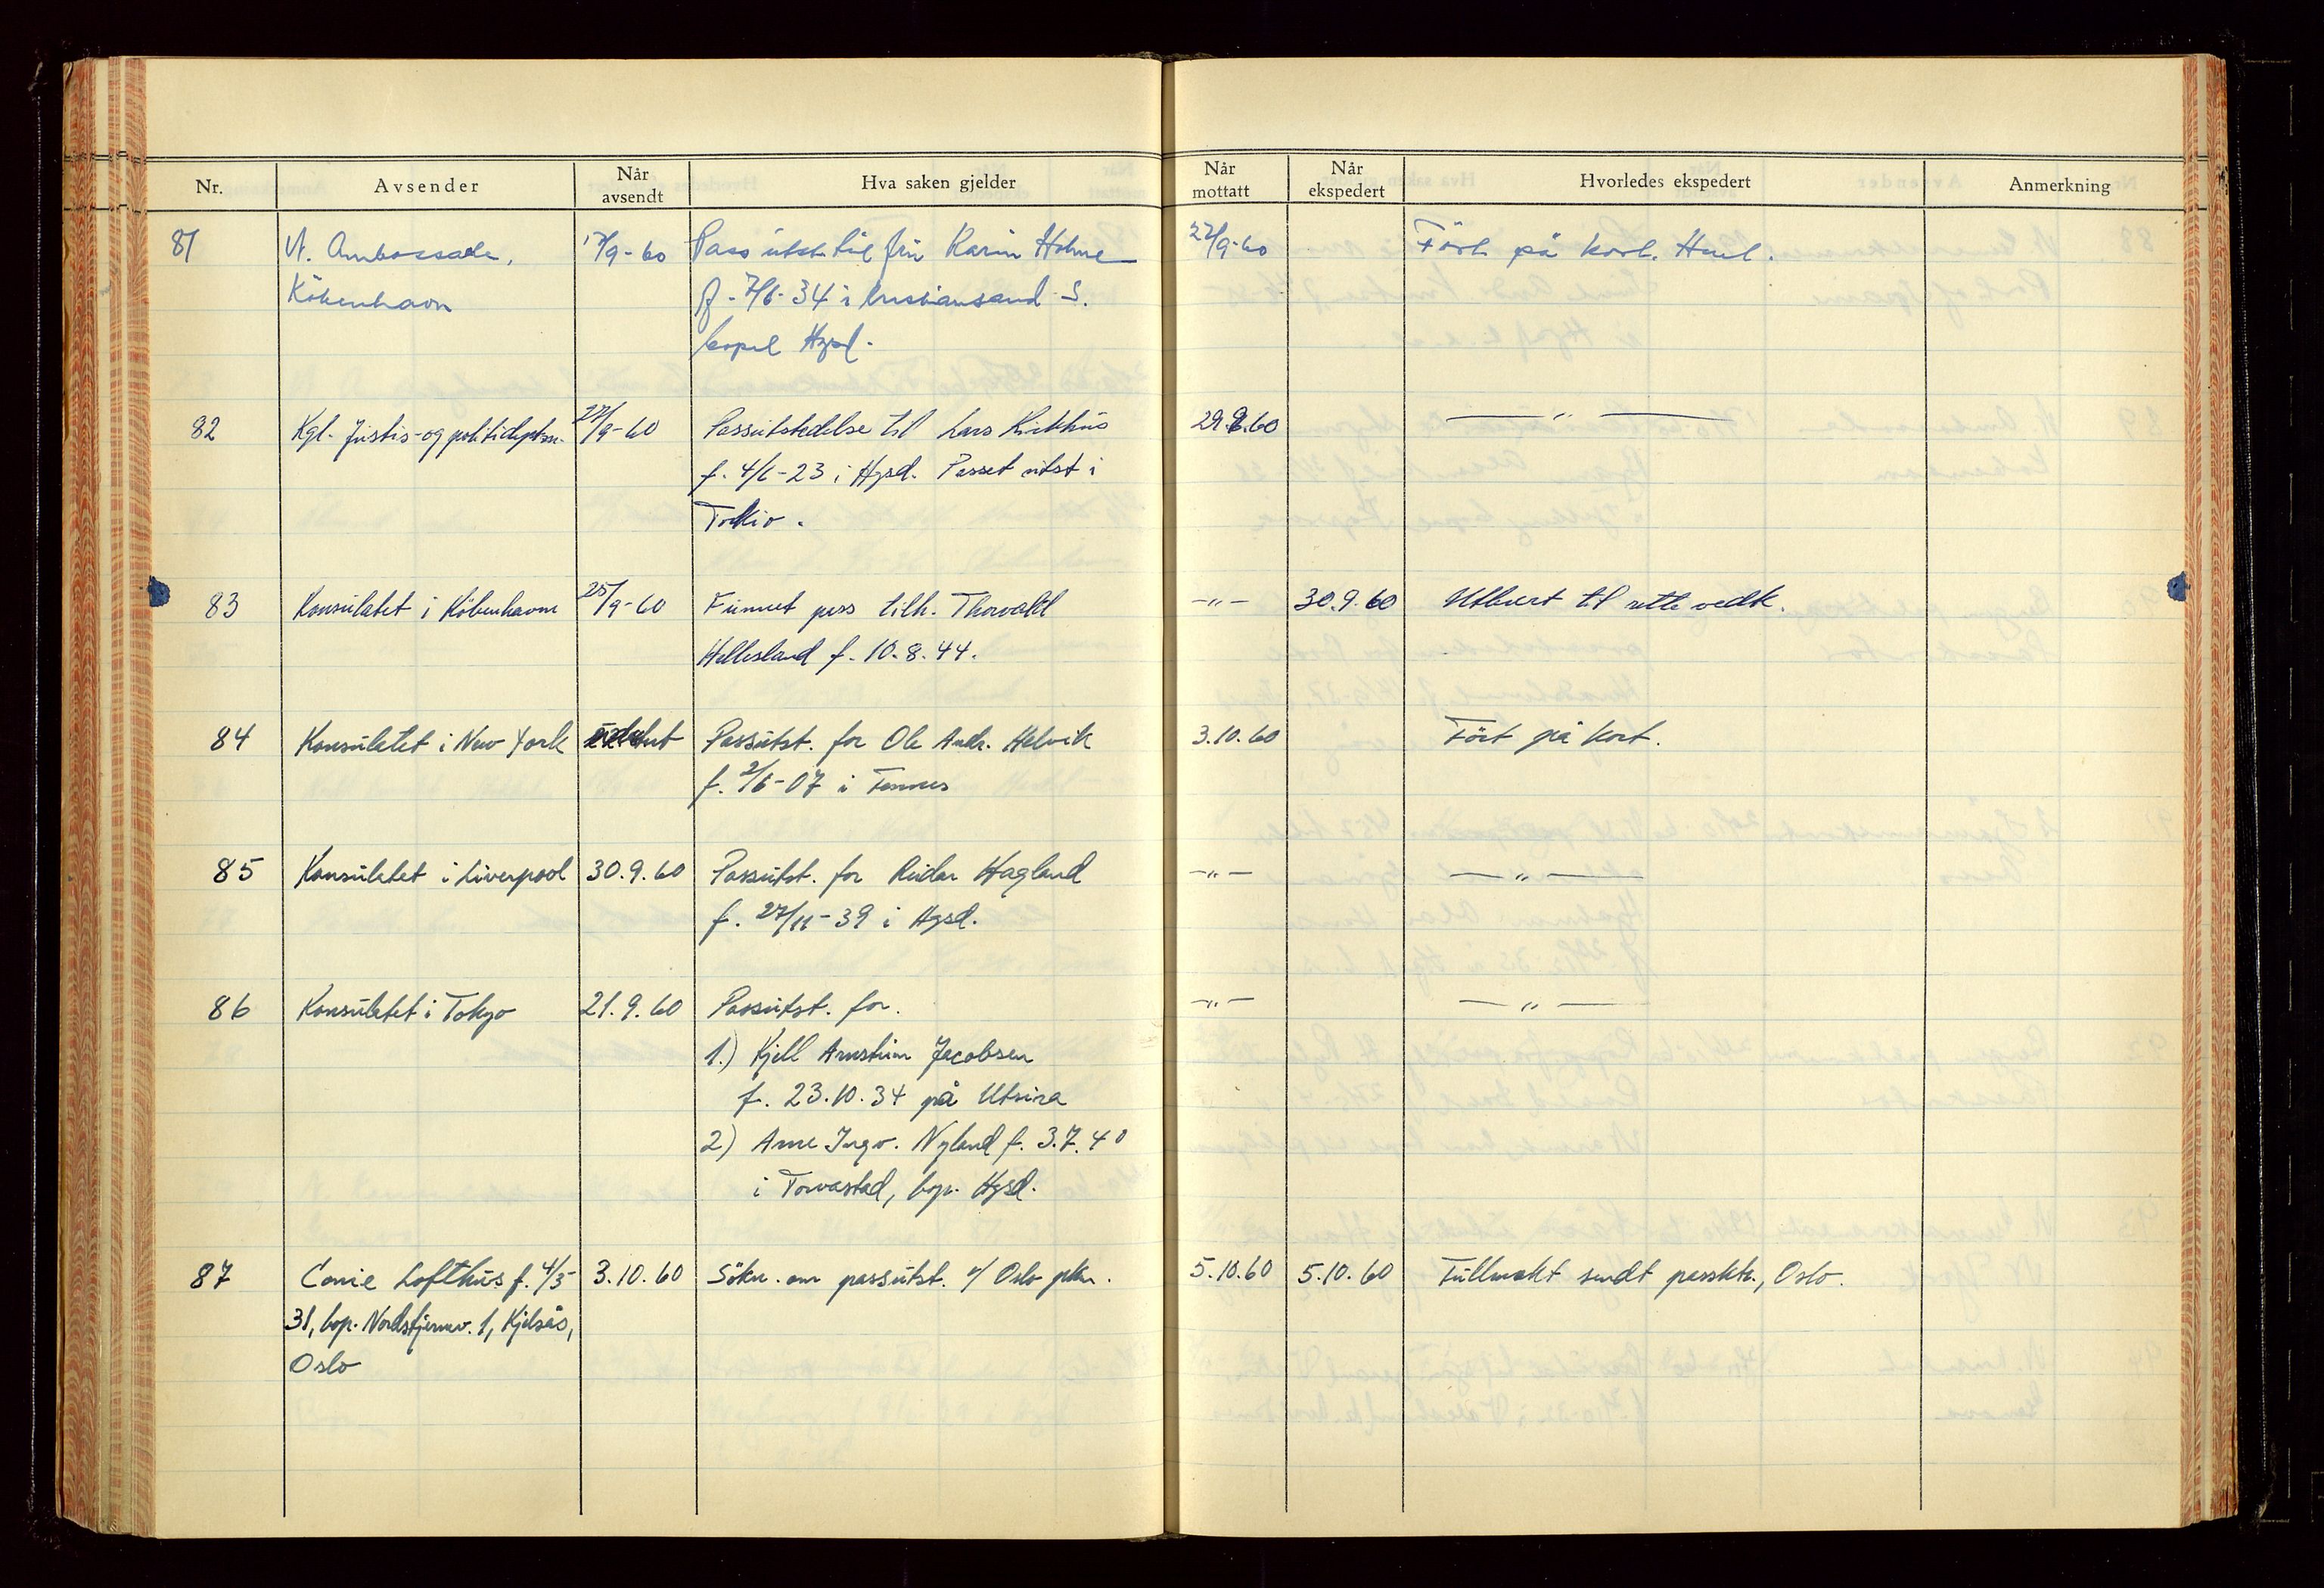 Nr. Avsender Når avsendt Hva saken gjelder Når mottatt Når ekspedert Hvorledes ekspedert Anmerkning
81 N. Ambassade, 17/9-60 Pass utst. til fru Karin 27/9-60 Ført på kort.
København f. 7/6-34 i Kristiansand S.
bopel Hgsd.
82 Kgl. Justis- og politideptm. 27/9-60 Passutstedelse til Lars Kirkhus 29.9.60 — " —
f. 4/6-23 i Hgsd. Passet utst i
Tokio.
83 Konsulatet i København 25/9-60 Funnet pass tilh. Thorvald — " — 30.9.60 Utlevert til rette vedk.
Hellesland f. 10.8.44.
84 Konsulatet i New York udatert Passutst. for Ole Andr. Helvik 3.10.60 Ført på kort.
f. 2/6-07 i
85 Konsulatet i Liverpool 30.9.60 Passutst. for Reidar Hagland — " — — " —
f. 27/11-39 i Hgsd.
86 Konsulatet i Tokyo 21.9.60 Passutst. for. — " — — " —
1.) Kjell Jacobsen
f. 23.10.34 på Utsira
2) Arne Ingv. Nyland f. 3.7.40
i Torvastad, bop. Hgsd.
87 Conie Lofthus f. 4/5- 3.10.60 Søkn. om passutst. v/ Oslo pkm. 5.10.60 5.10.60 Fullmakt sendt passktr., Oslo.
31, bop. Nordstjernev. 1, Kjelsås,
Oslo